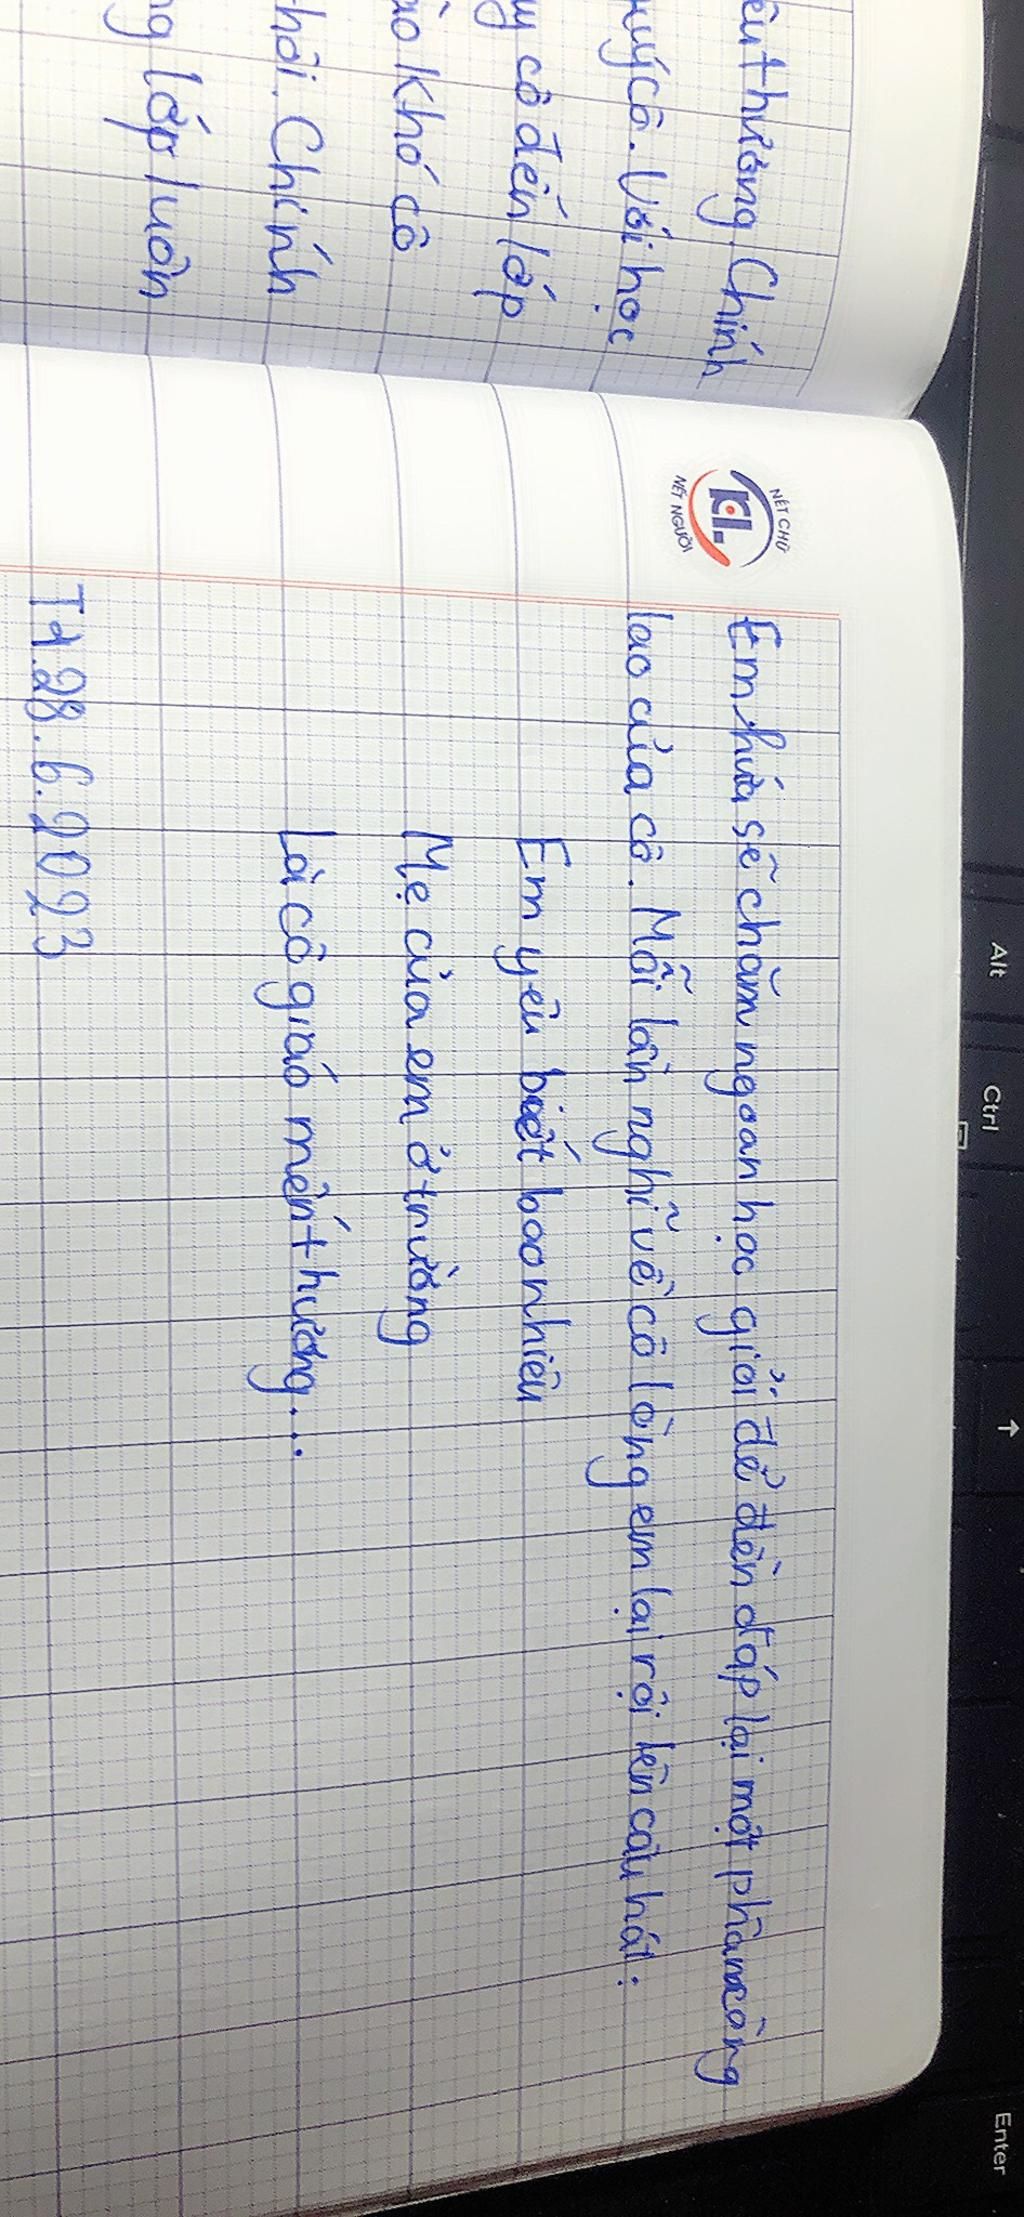 thương. Chính
cô. Với học
cô đến lớp
khó cô
Chính
lớp luôn
NÉT CHỮ
NẾT NGƯỜI
Em hứa sẽ chăm ngoan học giỏi để đền đáp lại một phần công
lao của cô. Mỗi lần nghĩ về cô lòng em lại rội lên câu hát:
Em yêu biết bao nhiêu
Mẹ của em ở trường
Là cô giáo mến thương...
T4.28.6.2023
Alt
Ctrl
↑
Enter